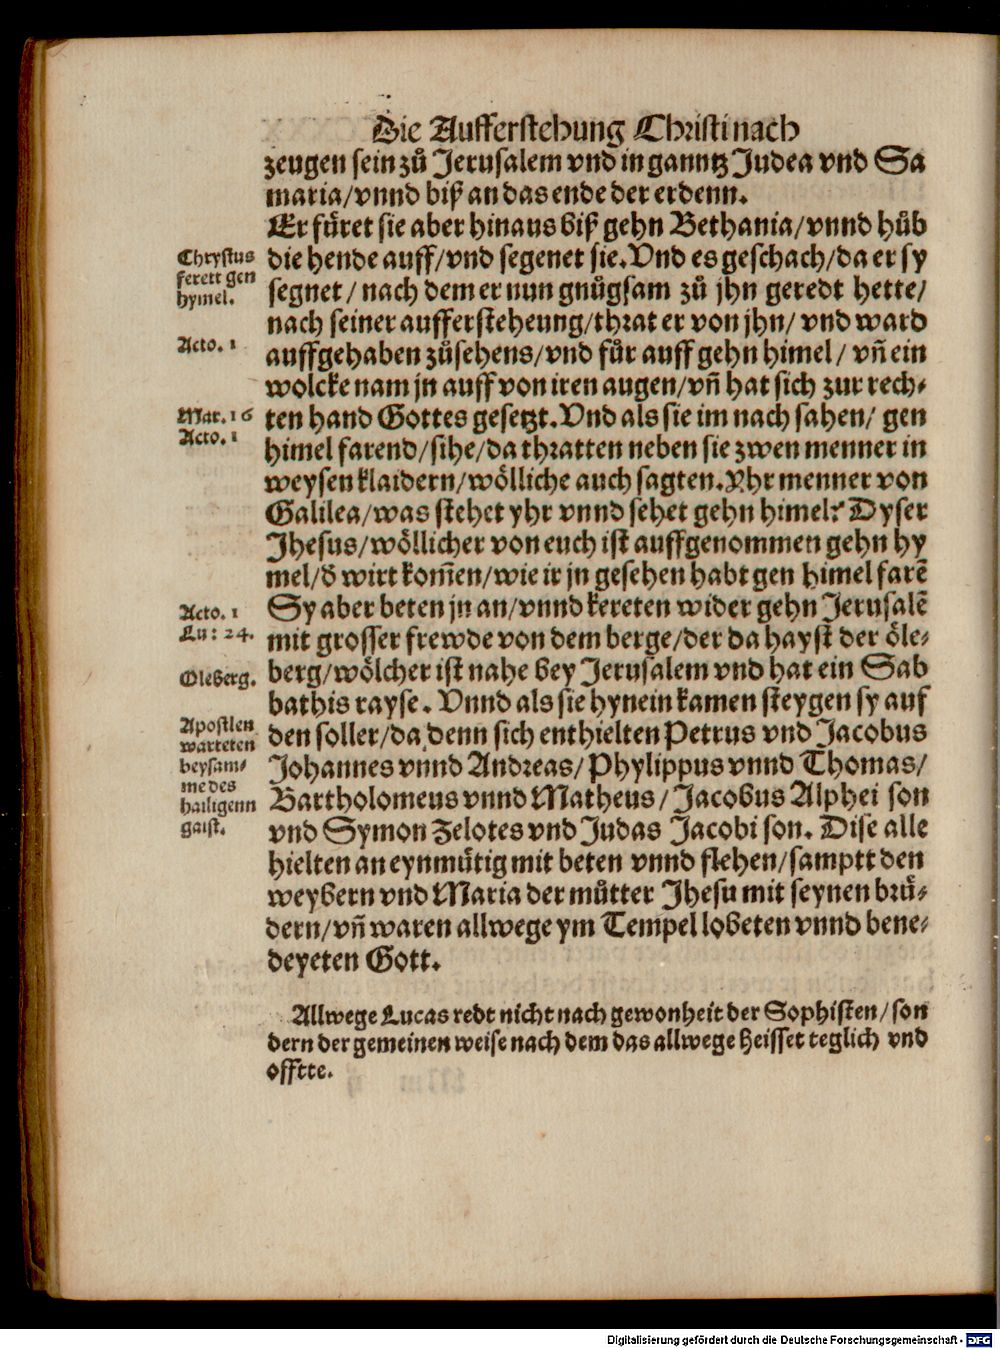 Die Aufferstehung Christi nach
zeugen sein zů Jerusalem vnd in ganntz Judea vnd Sa
maria/vnnd biß an das ende der erdenn.
Er fůret sie aber hinaus biß gehn Bethania/vnnd hůb
Chrystus
ferett gen
hymel.
die hende auff/vnd segenet sie. Vnd es geschach/da er sy
segnet/nach dem er nun gnůgsam zů jhn geredt hette/
nach seiner auffersteheung/thrat er von jhn/ vnd ward
Acto. 1
auffgehaben zůsehens/vnd fůr auff gehn himel/ vñ ein
wolcke nam jn auff von iren augen/vñ hat sich zur rech-
Mar. 16
Acto. 1
ten hand Gottes gesetzt. Vnd als sie im nach sahen/ gen
himel farend/sihe/da thratten neben sie zwen menner in
weysen klaidern/wölliche auch sagten. Yhr menner von
Galilea/was stehet yhr vnnd sehet gehn himel? Dyser
Jhesus/wöllicher von euch ist auffgenommen gehn hy
mel/d wirt kom̃en/wie ir jn gesehen habt gen himel farẽ
Acto. 1
Lu: 24.
Sy aber beten jn an/vnnd kereten wider gehn Jerusalẽ
mit grosser frewde von dem berge/der da hayst der öle-
Oleberg.
berg/wölcher ist nahe bey Jerusalem vnd hat ein Sab
bathis rayse. Vnnd als sie hynein kamen steygen sy auf
Apostlen
warteten
beysam-
me des
hailigenn
gaist.
den soller/da denn sich enthielten Petrus vnd Jacobus
Johannes vnnd Andreas/ Phylippus vnnd Thomas/
Bartholomeus vnnd Matheus/ Jacobus Alphei son
vnd Symon Zelotes vnd Judas Jacobi son. Dise alle
hielten an eynmůtig mit beten vnnd flehen/samptt den
weybern vnd Maria der můtter Jhesu mit seynen brů-
dern/vñ waren allwege ym Tempel lobeten vnnd bene-
deyeten Gott.
Allwege Lucas redt nicht nach gewonheit der Sophisten/son
dern der gemeinen weise nach dem das allwege heisset teglich vnd
offtte.
Digitalisierung gefördert durch die Deutsche Forschungsgemeinschaft - DFG